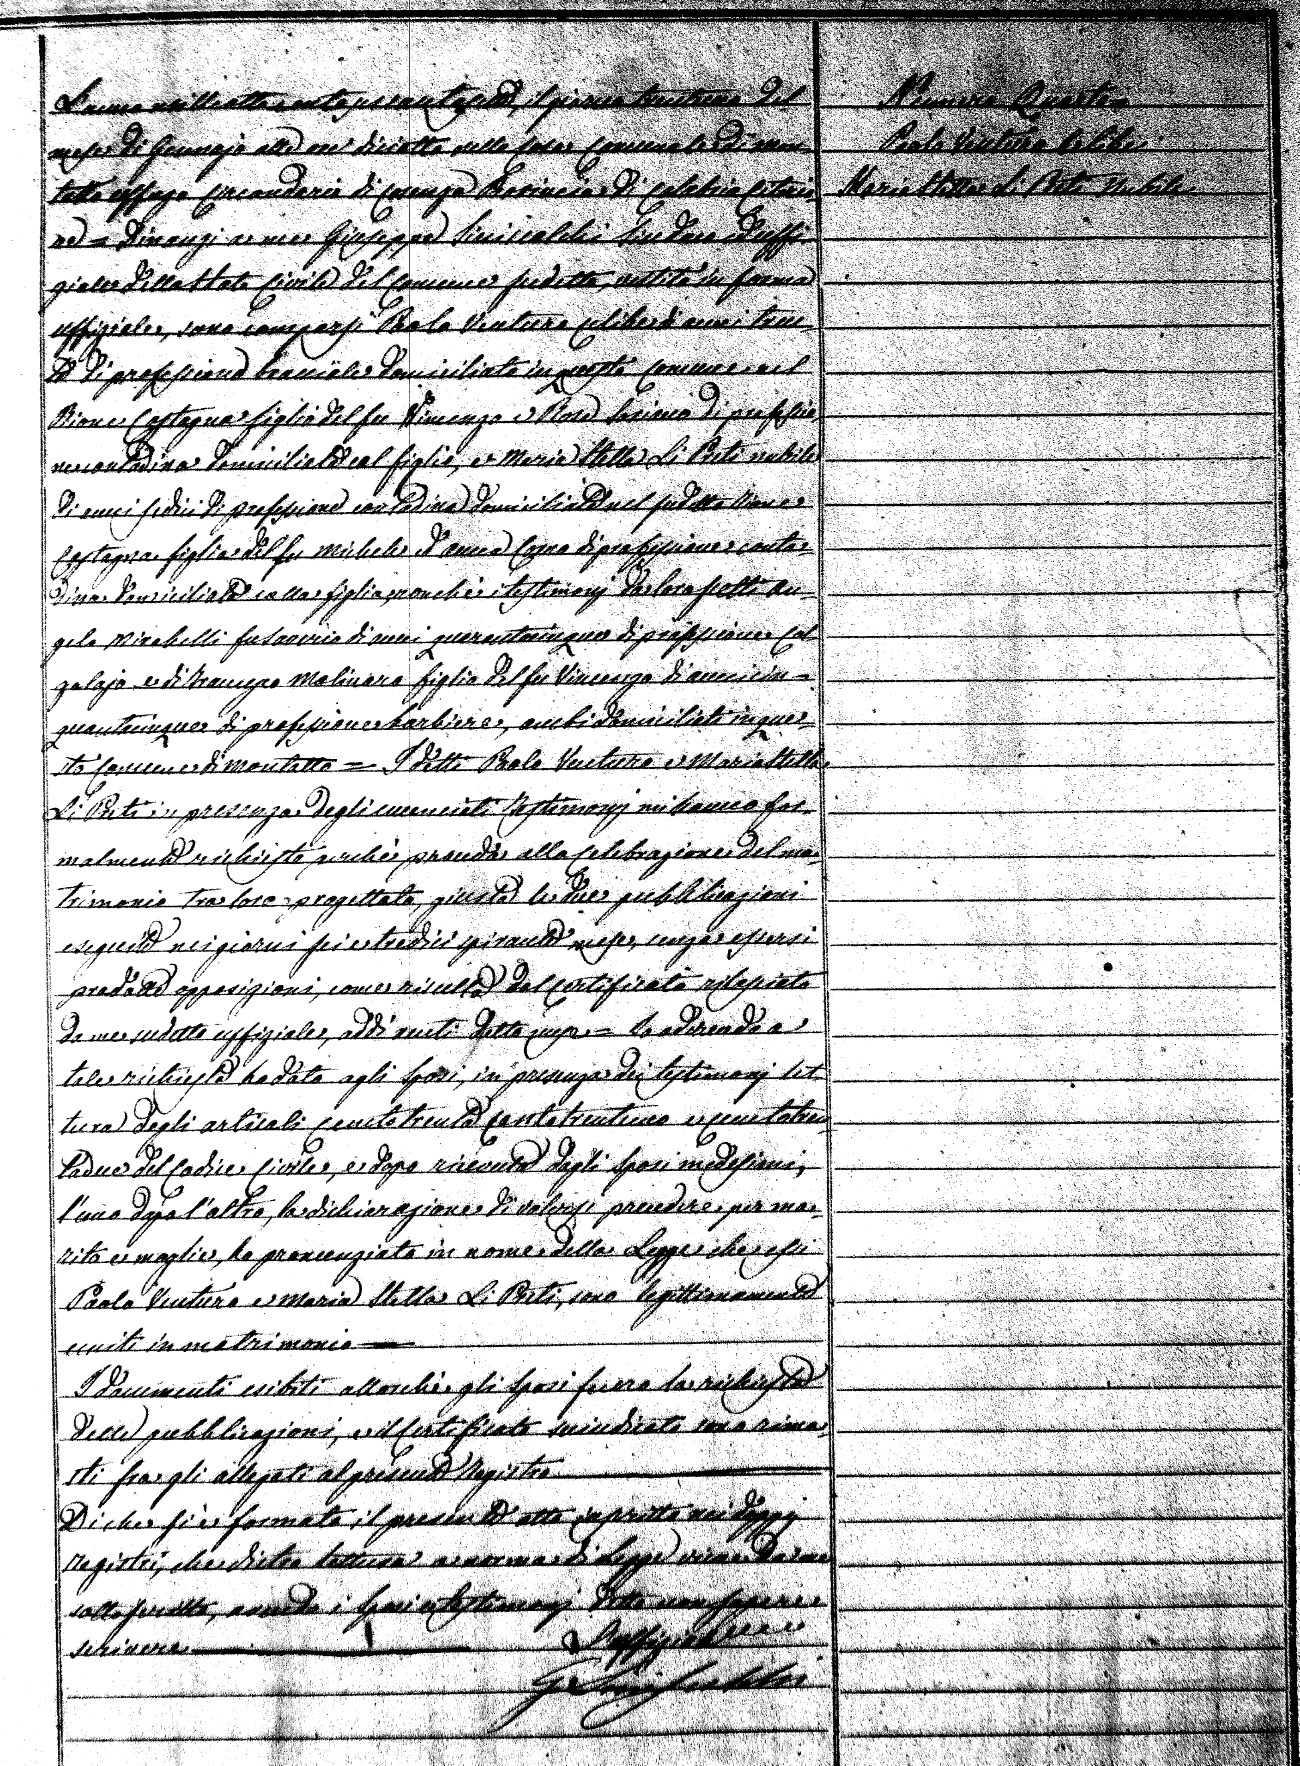 L'anno mille ottocento sessantasette, il giorno trentuno del
mese di Gennajo alle ore diciotto nella Casa Comunale di Mon-
talto uffugo Circondario di Cosenza Provincia di Calabria Citerio-
re = Dinanzi a me Giuseppe Siniscalchi Sindaco ed uffi-
ziale dello Stato Civile del Comune sudetto, vestito in forma
uffiziale, sono comparsi Paolo Ventura celibe di anni tren-
ta di professione bracciale domiciliato in questo Comune nel
Rione Castagna figlio del fu Vincenzo e Rosa di professio-
ne contadina domiciliata col figlio, e Maria Stella Li Preti nubile
di anni sedici di professione contadina domiciliata nel sudetto Rione
Castagna figlia del fu Michele e d'anna di professione conta-
dina domiciliata colla figlia, nonchè i testimonj da loro scelti An-
gelo Mirabelli fu Saverio di anni quarantacinque di professione Cal-
zolajo e di Francesco Molinaro figlio del fu Vincenzo di anni cin-
quantacinque di professione barbiere, ambi domiciliati in que-
sto Comune di Montalto = I detti Paolo Ventura e Maria Stella
Li Preti in presenza degli enunciati testimonj mi hanno for-
malmente richiesto perchè proceda alla celebrazione del ma-
trimonio tra loro progettato, giusta le due pubblicazioni
eseguite nei giorni sei e tredici spirante mese, senza essersi
prodotte opposizioni, come risulta dal Certificato rilasciato
da me sudetto uffiziale, addì venti detto mese = Io aderendo a
tale richiesta ho dato agli Sposi, in presenza dei testimonj let-
tura degli articoli centotrenta centotrentuno e centotren-
tadue del Codice Civile, e dopo ricevuta dagli Sposi medesimi,
l'uno dopo l'altro, la dichiarazione di volersi prendere per ma-
rito e moglie, ho pronunziato in nome della Legge che essi
Paolo Ventura e Maria Stella Li Preti, sono legittimamente
uniti in matrimonio
I documenti esibiti allorchè gli Sposi fecero la richiesta
delle pubblicazioni, e il Certificato suindicato sono rima-
sti fra gli allegati al presente Registro
Di che si è formato il presente atto in ambi i doppj
registri, che dietro lettura a norma di Legge viene da me
sottoscritto, avendo i Sposi e testimonj detto non sapere
scrivere
L'uffiziale
G Siniscalchi
Numero Quarto
Paolo Ventura Celibe
Maria Stella Li Preti Nubile